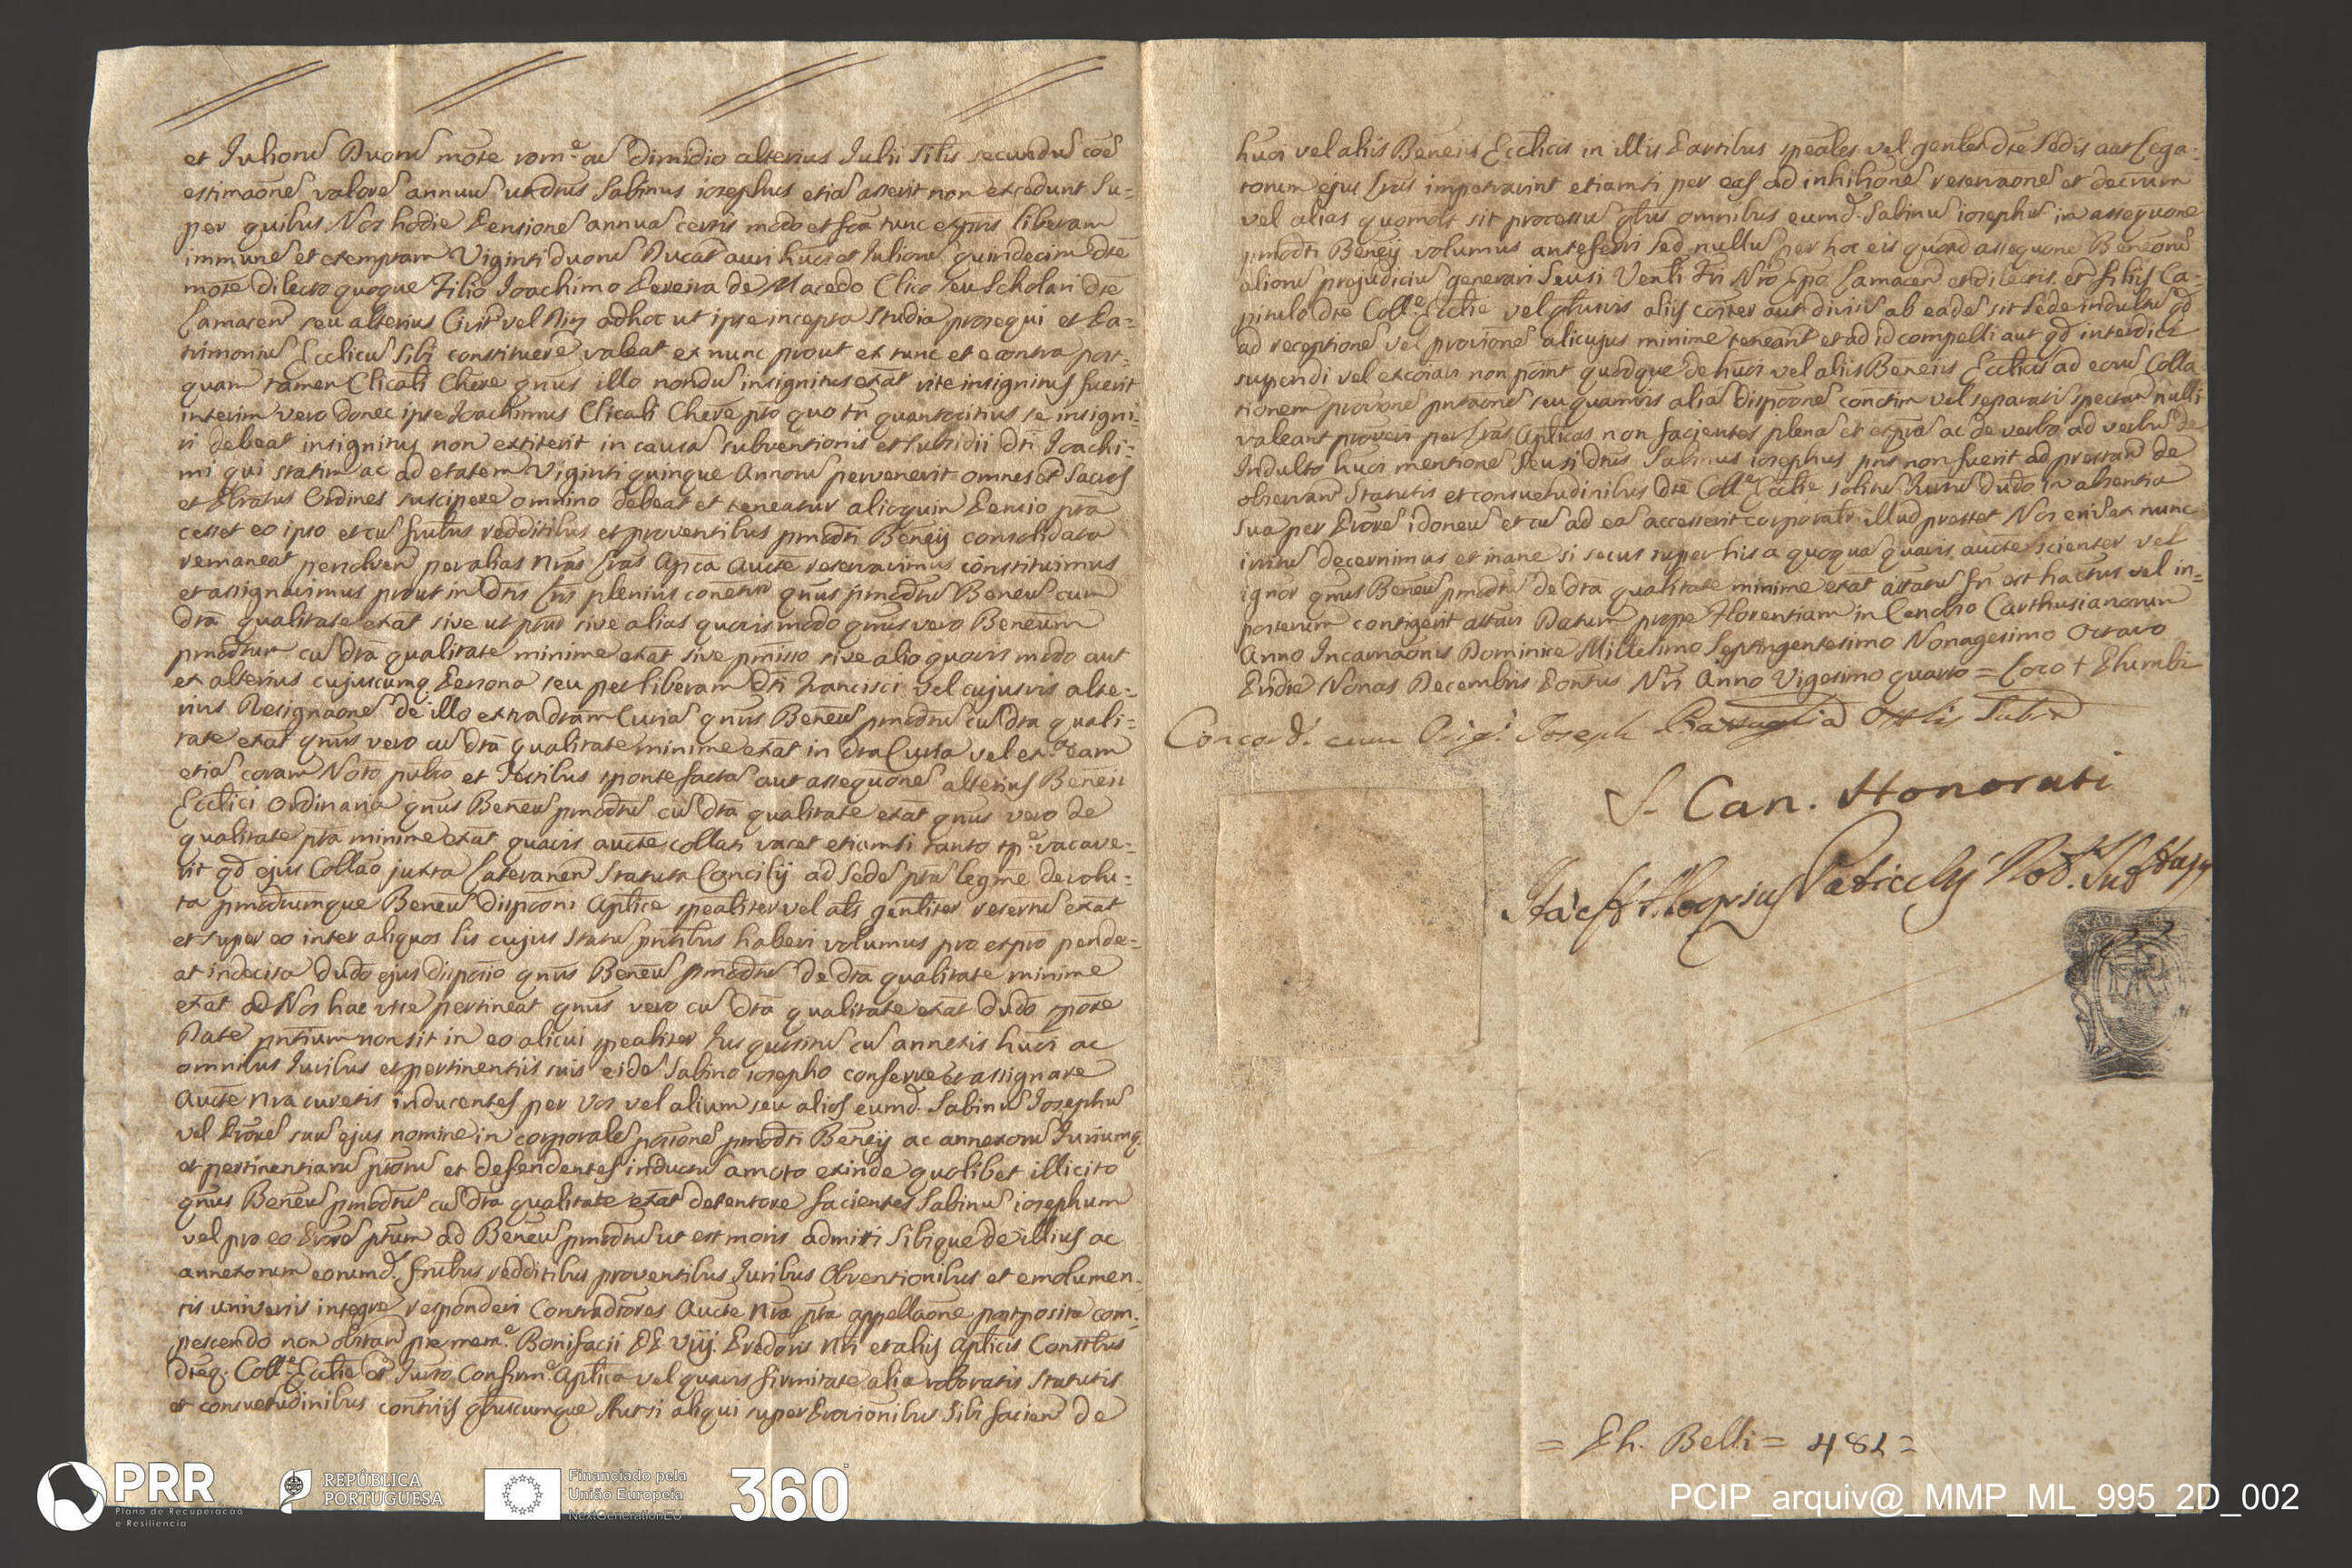 et Julionū Duonū monte rom.ᵉ ac Dimidio alterius Julii Silis secundū coē
estimaonē valorē annuū ut dtus Sabinus iosephus etiā asserit non excedunt Su-
per quibus Nos hodie Pensionē annuā certis modo et forā tunc expris liberam
immunē et exemptam Viginti duonū Ducat auri hmoi et Julionū quindecim dte
mote dilecto quoque Filio Joachimo Pereira de Macedo Clico seu Scholari dte
Lamacen seu alterius Civit vel ad hoc ut ipse incepta studia prosequi et Pa-
trimoniū Ecclicū Sibi constituere valeat ex nunc prout ex tunc et econtra post-
quam tamen Clicali Chere qnus illo nondū insignitus exāt rite insignitus fuerit
interim vero donec ipse Joachimus Clicali Chere pto quo tn quantocitius se insigni-
ri debeat insignitus non extiterit in causā subventionis et subsidii dti Joachi-
mi qui statim ac ad etatem Viginti quinque Annorū pervenerit omnes et Sacros
et Pbratus Ordines suscipere omnino debeat et teneatur alioquin Pensio pta
cesset eo ipso et cū frutbus redditibus et proventibus pmodti Beneij consolidata
remaneat persolven per alias nras Lras Aplica Aucte reservavimus constituimus
et assignavimus prout in dtis Lris plenius conetur qnus pmodtū Beneū cum
dta qualitate exat sive ut pfur sive alias quovis modo qnus vero Beneum
pmodtum cū dta qualitate minime exat sive pmisso sive alio quovis modo aut
ex alterius cujuscumq Persona seu per liberam dti Francisci vel cujusvis alte-
rius Resignaone de illo extra dtam Curiā qnus Beneū pmodtū cū dta quali-
tate exat qnus vero cū dta qualitate minime exat in dta Curia vel ex.ᵗʳᵃ eam
etiā coram Noto publo et Tetibus sponte factā aut assequone alterius Beneii
Ecclici Ordinaria qnus Beneū pmodtū cū dta qualitate exat qnus vero de
qualitate pta minime exat quavis aucte collati vacet etiamsi tanto tp.ᵉ vacave-
rit qd ejus Collao juxta Lateranen Statuta Concilij ad Sedē ptā legme devolu-
ta pmodtumque Beneū Dispōni Aplice spealiter vel als genliter reservū exat
et super eo inter aliquos lis cujus statū pntibus haberi volumus pro expro pende-
at indecisa dudo ejus dispoio qnus Beneū pmodtū de dta qualitate minime
exat ad Nos hac vice pertineat qnus vero cū dta qualitate exat dudo tpore
Date pntium non sit in eo alicui spealiter Jus quesitū cū annexis hmoi ac
omnibus Juribus et pertinentiis suis eidē Sabino iosepho conferre et assignare
Aucte nra curetis inducentes per Vos vel alium seu alios eumd. Sabinū Josephū
vel Prorē suū ejus nomine in corporalē poionē pmodti Beneij ac annexorū Juriumq.
et pertinentiarū ptorū et defendentes inductū amoto exinde quolibet illicito
qnus Beneū pmodtū cū dta qualitate exat detentore facientes Sabinū iosephum
vel pro eo Prorē ptum ad Beneū pmodtū ut est moris admitti Sibique de illius ac
annexorum eorumd. frutbus redditibus proventibus Juribus Obventionibus et emolumen-
tis universis integre responderi Contradtores Aucte nra pta appellaone postposita com-
pescendo non obstan pie mem.ᵉ Bonifacii PP VIIJ. Predoris Nri et aliis Aplicis Constibus
dteq. Coll.ᵉ Ecclie et Juto Confirm.ᵉ Aplica vel quavis firmitate alia roboratis Statutis
et consuetudinibus contriis qbuscumque Aut si aliqui super Provionibus Sibi facien de
hmoi vel aliis Beneiis Ecclicis in illis Partibus speales vel genles dte Sedis aut Lega-
torum ejus Lras impetraverint etiamsi per eas ad inhibionē reservaonē et decrum
vel alias quomolt sit processū qbus omnibus eumd. Sabinū iosephū in assequone
pmodti Beneij volumus anteferri Sed nullū per hoc eis quoad assequone Beneonū
aliorū prejudiciū generari Seu si Venli Fri Nro Epo Lamacen et dilectis et filiis Ca-
pitulo dte Coll.ᵉ Ecclie vel qbusvis aliis coiter aut divisi ab eadē sit Sede indultū qd
ad receptionē vel provionē alicujus minime teneant et ad id compelli aut qd interdici
suspendi vel excoiari non point quodque de hmoi vel aliis Beneiis Ecclicis ad eorū Colla-
tionem provionē pntaonē seu quamvis aliā dispoonē conctim vel separati spectan nulli
valeant provideri per Lras Aplicas non facientes plenā et expram ac de verbo ad verbū de
Indulto hmoi mentionē Seu si dtus Sabinus iosephus pns non fuerit ad prestan de
observan Statutis et consuetudinibus dte Coll.ᵉ Ecclie solitū Jurū dudo in absentia
Sua per Prorē idoneū et cū ad eā accesserit corporalr illud prestet Nos enim ex nunc
irritū decernimus et inane si secus super his a quoquā quavis aucte scienter vel
ignor qnus Beneū pmodtū de dta qualitate minime exat attatū fri est hactus vel in-
posterum contigerit attari Datum prope Florentiam in Cenobio Carthusianorum
Anno Incarnaonis Dominice Millesimo Septingentesimo Nonagesimo Octavo
Pridie Nonas Decembris Pontus Nri Anno Vigesimo quarto = Loco + Plumbi
Concord. cum Orig.ˡ Joseph Battaglia Offlis
S. Can. Honorati
Ita est Aloysius Not.
= Ph. Belli = 482 =
PRR
Plano de Recuperação
e Resiliência
REPÚBLICA
PORTUGUESA
Financiado pela
União Europeia
NextGenerationEU
360°
PCIP_arquiv@_MMP_ML_995_2D_002